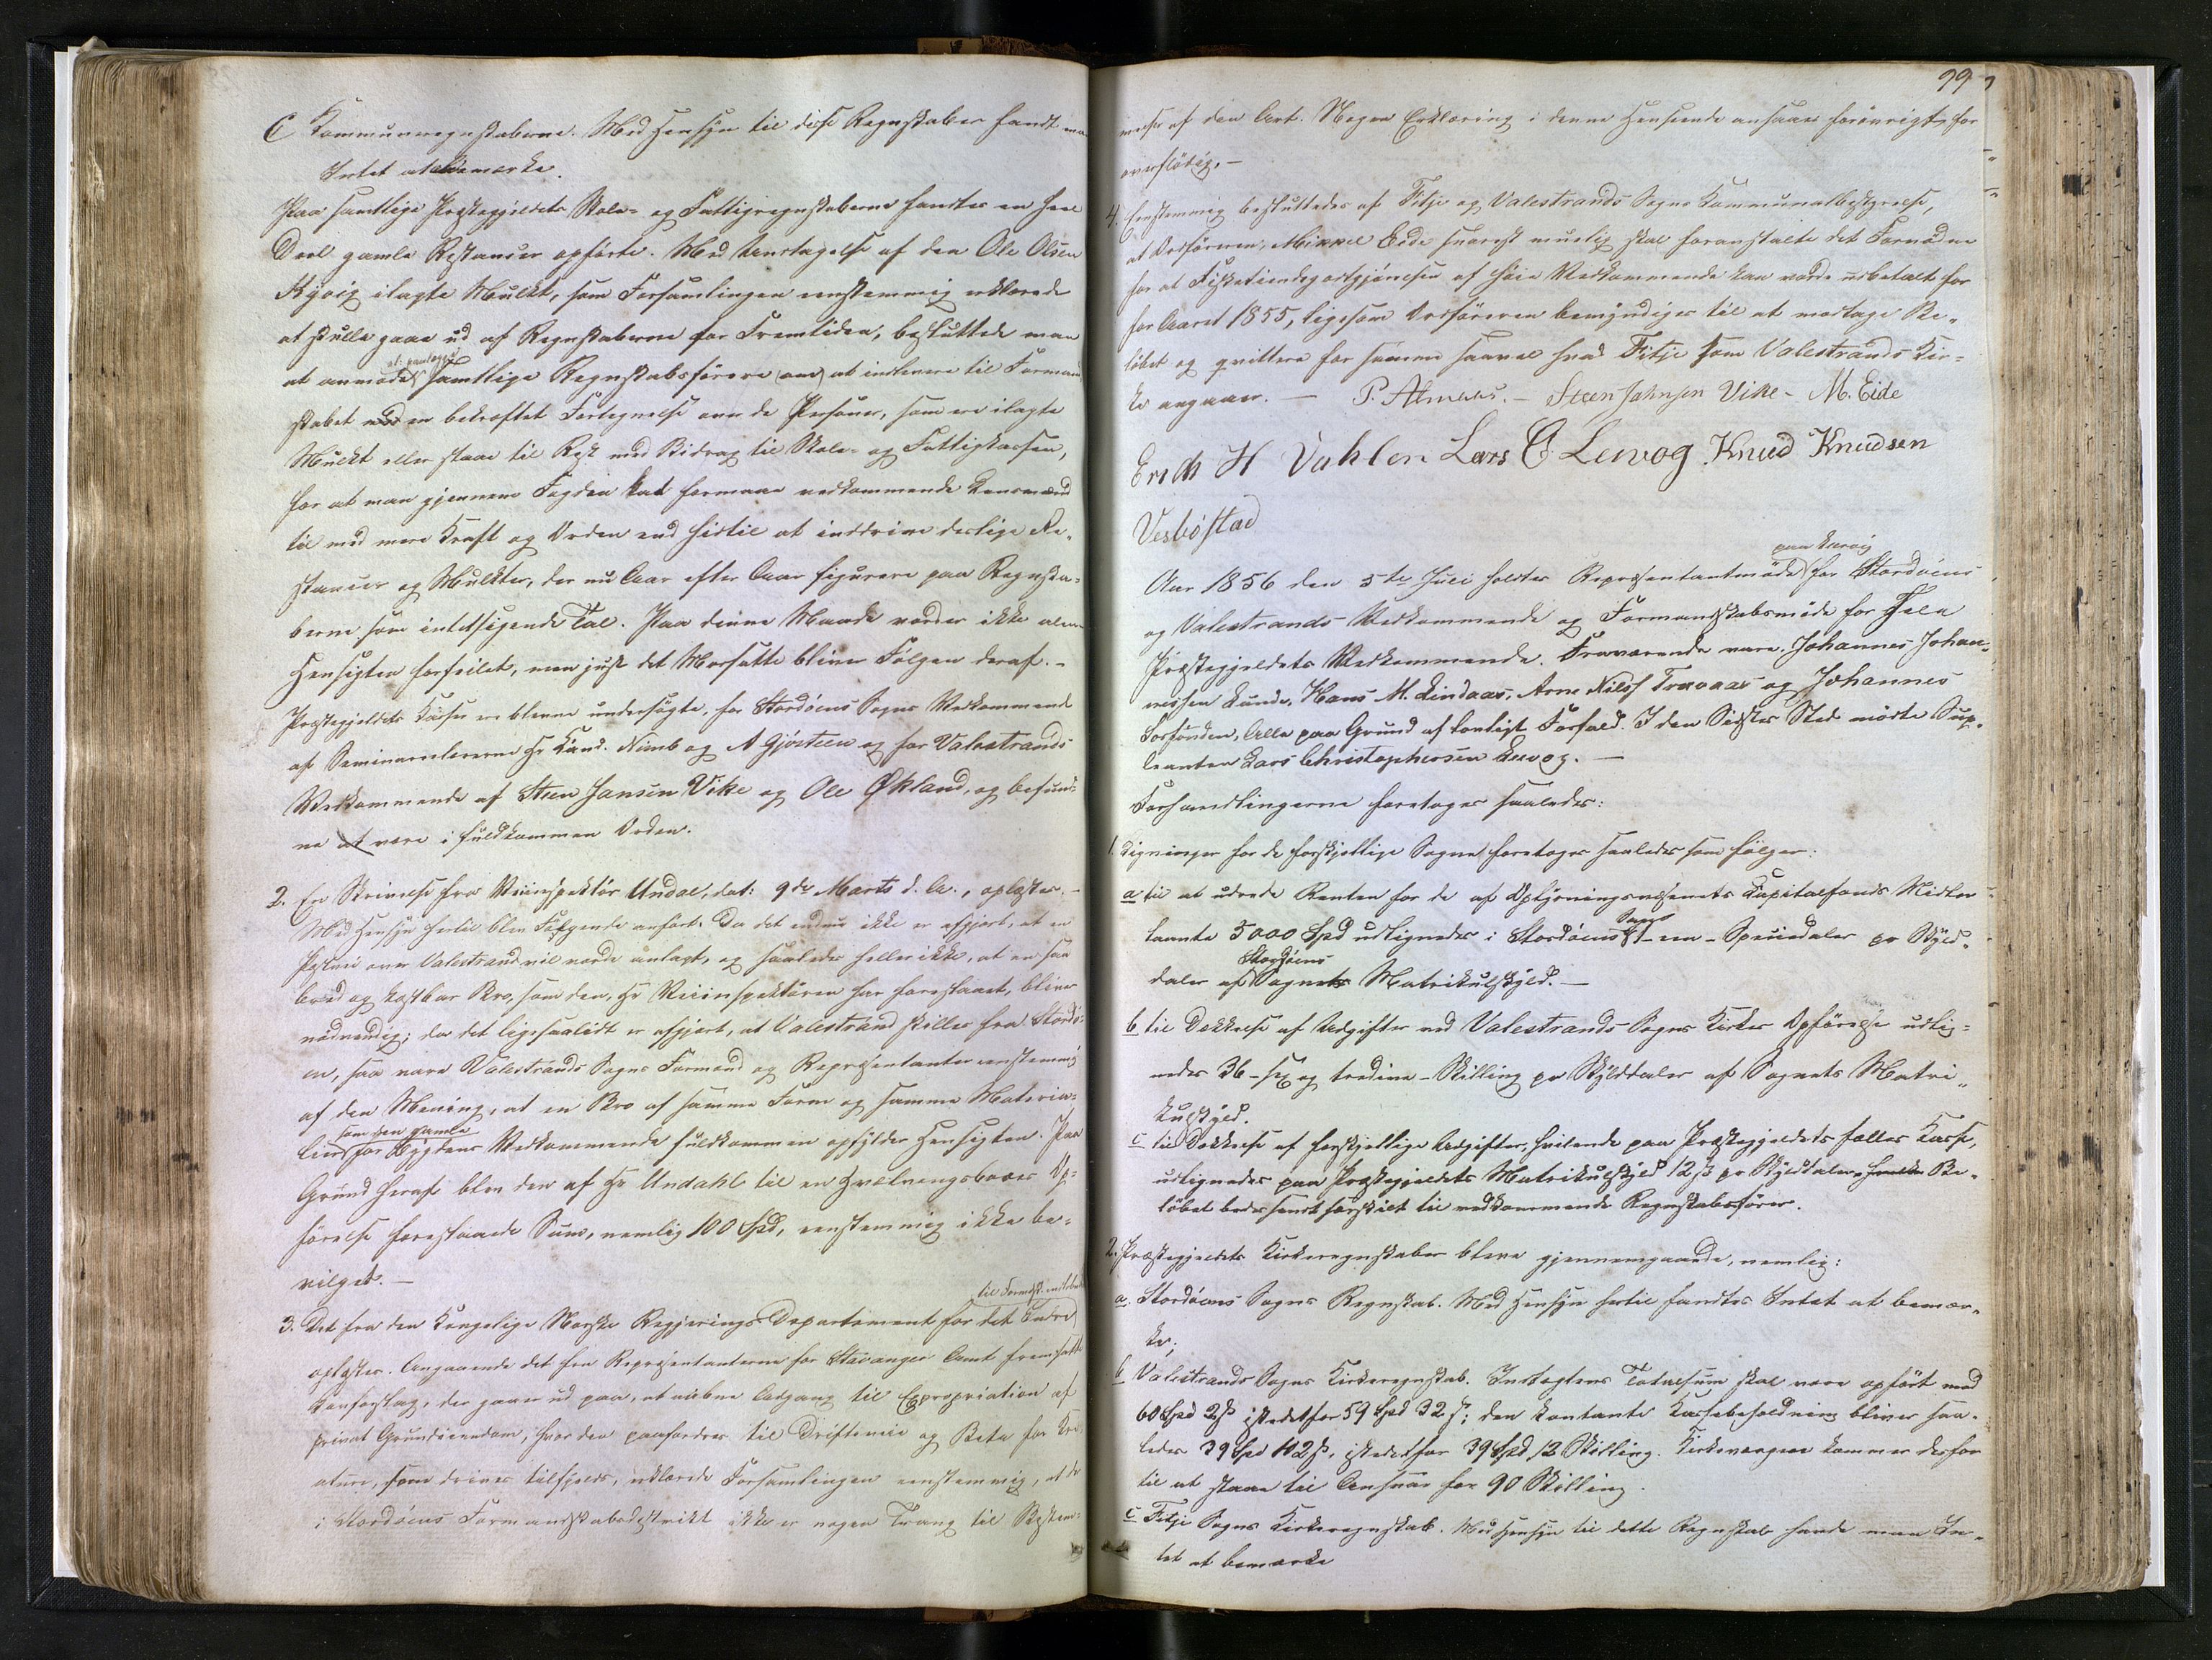 C Kommuneregnskaberne. Med Hensyn til disse Regnskaber fandt man
Intet at bemærke.
Paa samtlige Præstegjeldets Skole- og Fattigregnskaberne fandtes en heel
Deel gamle Restancer opførte. Med Undtagelse af den Ole Olsen
ilagte Mulkt, som Forsamlingen eenstemmig erklærede
at skulle gaae ud af Regnskaberne for Fremtiden, besluttede man
at anmode samtlige Regnskabsførere om at indlevere til Formand
skabet en bekræftet Fortegnelse over de Personer, som ere ilagte
Mulkt eller staae til Rest med Bidrag til Skole- og Fattigkassen,
for at man gjennem Fogden kat formaae vedkommende Lensmænd
til med mere Kraft og Orden end hidtil at inddrive deslige Re-
stancer og Mulkter, der nu Aar efter Aar figurere paa Regnska-
berne som intetsigende Tal. Paa denne Maade vorder ikke alene
Hensigten forfeilet, men just det Modsatte bliver Følgen deraf. -
Præstegjeldets Kasser ere blevne undersøgte, for Stordøens Sogns Vedkommende
af Seminarielærerne Hr Cand. Nimb og A Gjøsteen og for Valestrands
Vedkommende af Steen Jansen Vike og Ole Økland, og befund-
ne at være i fuldkommen Orden.
2. En Skrivelse fra Veiinspektør Undal, dat: 9de Marts d. A., oplæstes. -
Med Hensyn hertil blev Følgende anført: Da det endnu ikke er afgjort, at en
Postvei over Valestrand vil vorde anlagt, og saaledes heller ikke, at en saa
bred og kostbar Bro, som den, Hr Veiinspektøren har foreslaaet, bliver
nødvendig; da det ligesaalidt er afgjort, at Valestrand skilles fra Stordø-
en, saa vare Valestrands Sogns Formænd og Repræsentanter eenstemmig
af den Mening, at en Bro af samme Form og samme Materia-
som den gamle
lier for Bygdens Vedkommende fuldkommen opfylder Hensigten. Paa
Grund heraf blev den af Hr Undahl til en Hvælvingsbroes Op-
førelse foreslaaede Sum, nemlig 100 Spd, eenstemmig ikke be-
vilget. -
3. Det fra den Kongelige Norske Regjerings Departement for det Indre
oplæstes. Angaaende det fra Repræsentanterne for Stavanger Amt fremsatte
Lovforslag, der gaaer ud paa, at aabne Adgang til Expropriation af
privat Grundeiendom, hvor den paafordres til Driftevei og Beite for Kre
ature, som drives tilfjelds, erklærede Forsamlingen eenstemmig, at der
i Stordøens Formandskabsdistrikt ikke er nogen Trang til Bestem-
99
melse af den Art. Nogen Erklæring i denne Henseende ansaaes forøvrigt for
overflødig. -
4. Eenstemmig besluttedes af Fitje og Valestrands Sogns Kommunalbestyrelse,
at Ordføreren, Mikkel Eide snarest muelig skal foranstalte det Fornødne
for at Fisketiendegodtgjørelsen af høie Vedkommende kan vorde udbetalt for
for Aaret 1855, ligesom Ordføreren bemyndiges til at modtage Be-
løbet og qvittere for samme saavel hvad Fitje som Valestrands Kir-
ke angaaer. - P. Almaas. - Steen Johnsen Vike - M. Eide
Erich H Vahlen Lars C Lervog Knud Knudsen
Vesbøstad
paa Lervig
Aar 1856 den 5te Juli holdtes Repræsentantmøde for Stordøens
og Valestrands Vedkommende og Formandskabsmøde for hele
Præstegjeldets Vedkommende. Fraværende vare. Johannes Johan-
nessen Lunde, Hans M. Lindaas, Arne Nilss Travaas og Johannes
Alle paa Grund af lovligt Forfald. I den Sidstes Sted mødte Sup-
leanten Lars Christophersen Lervog. -
Forhandlingerne foretoges saaledes:
1. Ligninger for de forskjellige Sogne foretoges saaledes som følger:
a til at udrede Renten for de af Oplysningsvæsenets Kapitalfonds Midler
Sogn
laante 5000 Spd udlignedes i Stordøens 1 - een - Speciedaler pr Skyld-
Stordøens
daler af Sognets Matrikulskyld. -
b til Dækkelse af Udgifter ved Valestrands Sogns Kirkes Opførelse udlig-
nedes 36 - sex og tredive - Skilling pr Skylddaler af Sognets Matri-
kulskyld.
c til Dækkelse af forskjellige Udgifter, hvilende paa Præstegjeldets fælles Kasse,
udlignedes paa Præstegjeldets Matrikulskyld 12 ß pr Skylddaler, hvilke Be-
løbet bedes særskilt til vedkommende Regnskabsfører.
2. Præstegjeldets Kirkeregnskaber bleve gjennemgaaede, nemlig:
a. Stordøens Sogns Regnskab. Med Hensyn hertil fandtes Intet at bemær-
ke;
b Valestrands Sogns Kirkeregnskab. Indtægtens Totalsum skal være opført med
60 Spd 2 ß istedetfor 59 Spd 32 ß; den kontante Kassebeholdning bliver saa-
ledes 39 Spd 102 ß, istedetfor 39 Spd 12 Skilling. Kirkeværgen kommer derfor
til at staae til Ansvar for 90 Skilling.
c Fitje Sogns Kirkeregnskab. Med Hensyn til dette Regnskab fandt man In-
tet at bemærke